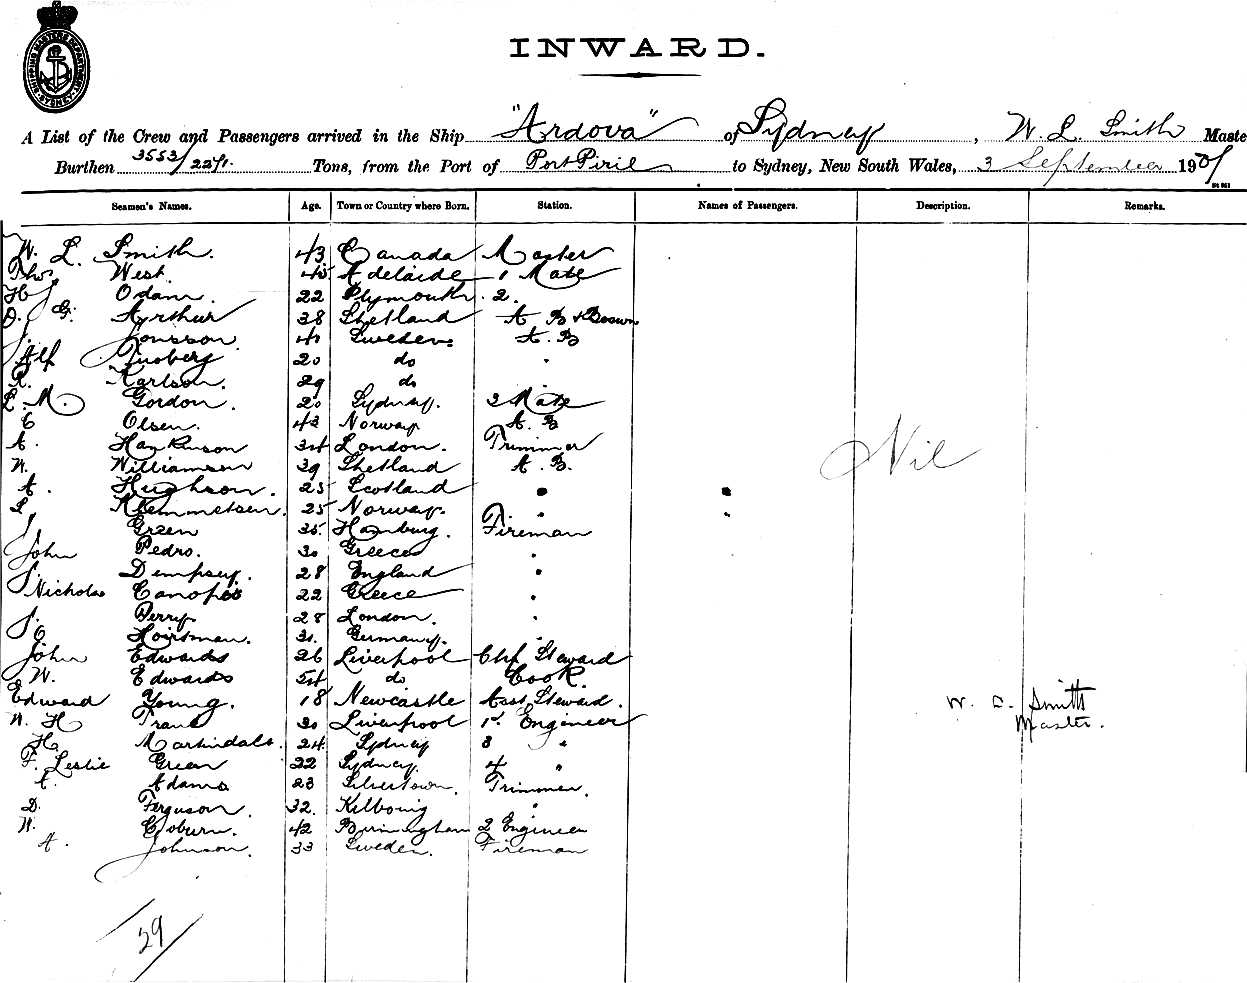 SHIPPING MASTERS DEPARTMENT SYDNEY
INWARD.
A List of the Crew and Passengers arrived in the Ship "Ardova" of Sydney, W. L. Smith Maste
Burthen 3553/2271. Tons, from the Port of Port Pirie to Sydney, New South Wales, 3 September 1901
Seamen's Names. Age. Town or Country where Born. Station. Names of Passengers. Description. Remarks.
W. L. Smith. 43 Canada Master
Thos West. 45 Adelaide 1 Mate
H Odam. 22 Plymouth. 2.
D. G. Arthur 38 Shetland A B & Boswn
J. Jonsson. 41 Sweden. A. B
Alf 20 do "
R. Karlson. 29 do
L. M. Gordon. 20 Sydney. 3 Mate
C Olsen. 43 Norway A. B
A. Hankinson 34 London. Trimmer
W. Williamson 39 Shetland A. B.
A. Hughson. 25 Scotland "
L Klemmetsen. 25 Norway. "
J. Green 35. Hamburg. Fireman
John Pedro. 30 Greece "
J. Dempsey. 28 England "
Nicholas Canopos 22 Greece "
J. Perry 28 London. "
C Hoirsman. 31. Germany. "
John Edwards 26 Liverpool Chf Steward
W. Edwards 54 do Cook.
Edward Young. 18 Newcastle Asst Steward.
W. H Trane 30 Liverpool 1st Engineer
H. Martindale. 24. Sydney 3 "
F. Leslie Green 22 Sydney. 4 "
A. Adams 23 Silvertown. Trimmer.
D. Ferguson. 32. "
W. Coburn. 42 Birmingham 2 Engineer
A. Johnson. 33 Sweden. Fireman
Nil
W. L. Smith
Master.
29